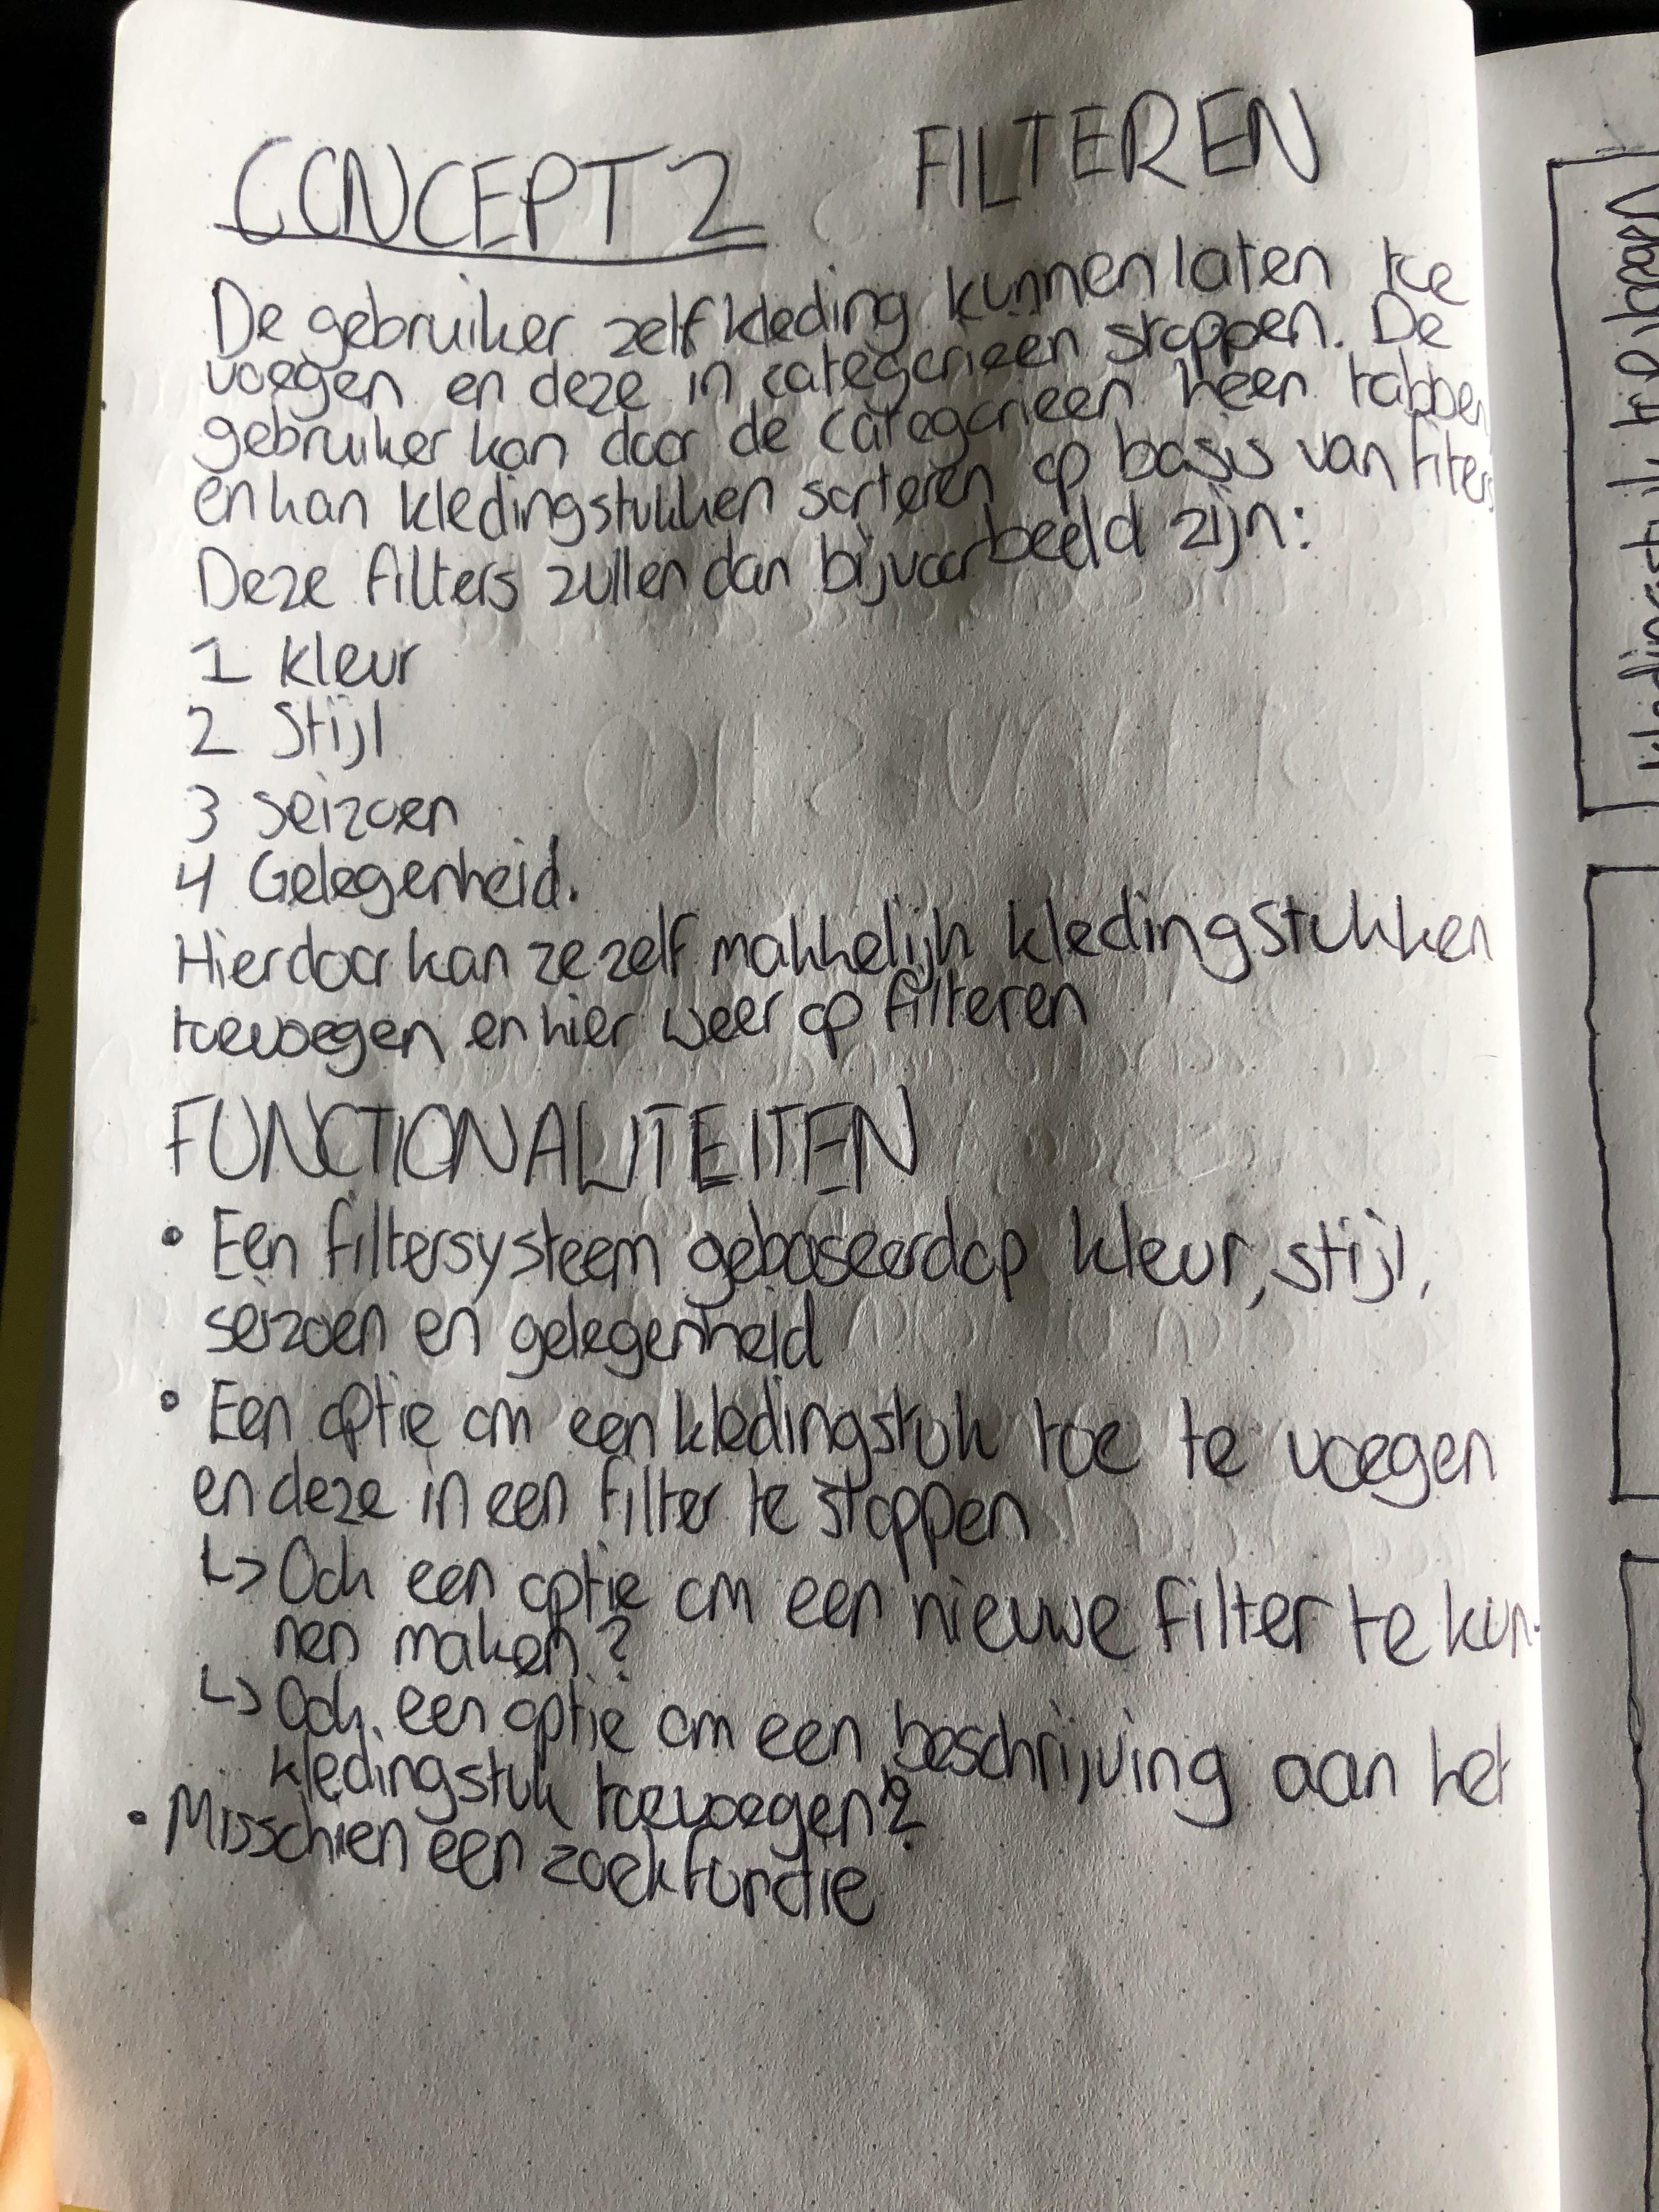 CONCEPT 2 FILTEREN
De gebruiker zelf kleding kunnen laten toe
voegen en deze in categorieen stoppen. De
gebruiker kan door de categorieen heen tabben
en kan kledingstukken sorteren op basis van fiters
Deze filters zullen dan bijvoorbeeld zijn:
1 kleur
2 Stijl
3 seizoen
4 Gelegenheid.
Hierdoor kan ze zelf makkelijk kledingstukken
toevoegen en hier weer op filteren
FUNCTIONALITEITEN
• Een filtersysteem gebaseerd op kleur, stijl,
seizoen en gelegenheid
• Een optie om een kledingstuk toe te voegen
en deze in een filter te stoppen
↳ Ook een optie om een nieuwe filter te kun-
nen maken?
↳ Ook een optie om een beschrijving aan het
kledingstuk toevoegen?
• Misschien een zoekfunctie